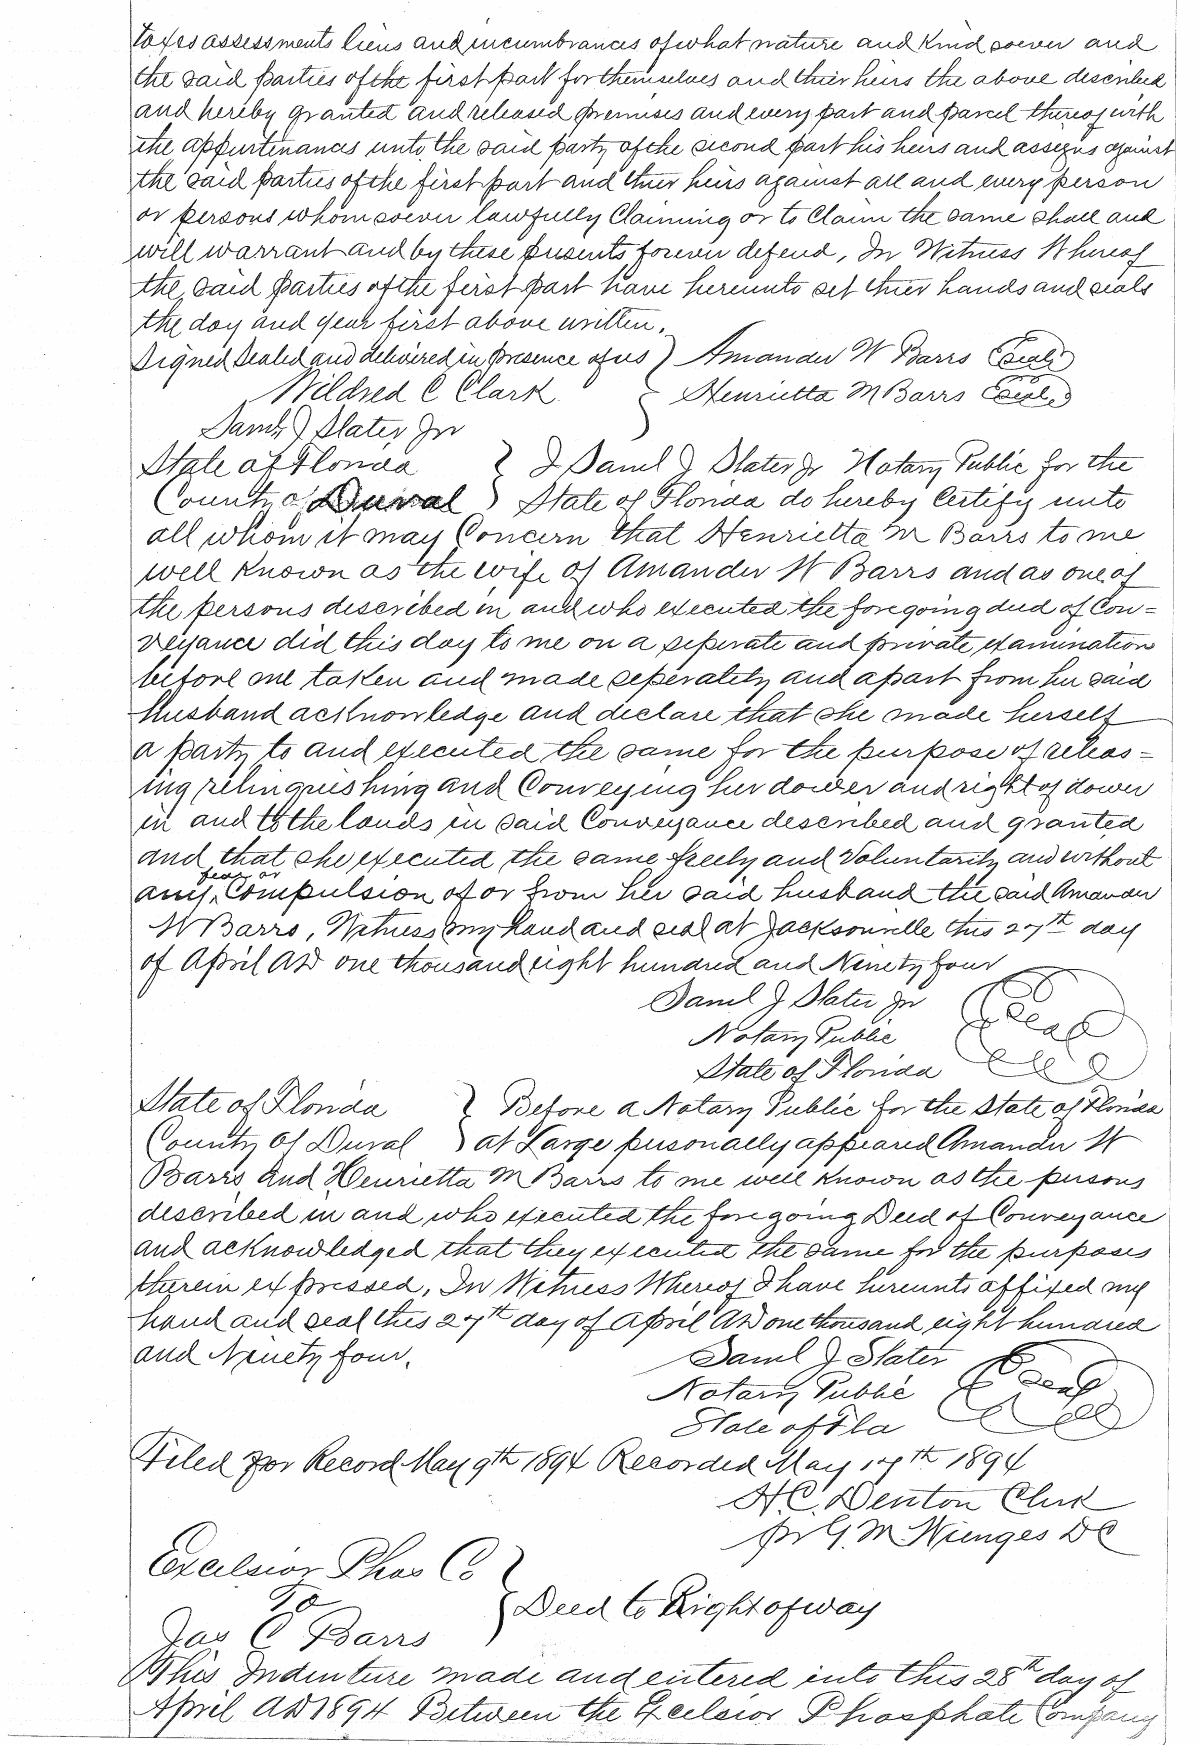 taxes assessments liens and incumbrances of what nature and kind soever and
the said parties of the first part for themselves and thier heirs the above described
and hereby granted and released premises and every part and parcel thereof with
the appurtinances unto the said party of the second part his heirs and assigns against
the said parties of the first part and thier heirs against all and every person
or persons whomsoever lawfully Claiming or to Claim the same shall and
will warrant and by these presents forever defend, In Witness Whereof
the said parties of the first part have hereunto set thier hands and seals
the day and year first above written.
Signed Sealed and delivered in presence of us ) Amander W Barrs (Seal)
Mildred C Clark } Henrietta M Barrs (Seal)
Saml J Slater Jr
State of Florida } I Saml J Slater Jr Notary Public for the
County of Duval } State of Florida do hereby Certify unto
all whom it may Concern that Henrietta M Barrs to me
well Known as the wife of Amander W Barrs and as one of
the persons described in and who executed the foregoing deed of Con=
veyance did this day to me on a seperate and private examination
before me taken and made seperately and apart from her said
husband acknowledge and declare that she made herself
a party to and executed the same for the purpose of releas=
ing relinquishing and Conveying her dower and right of dower
in and to the lands in said Conveyance described and granted
and that she executed the same freely and Voluntarily and without
any fear or Compulsion of or from her said husband the said Amander
W Barrs, Witness my hand and seal at Jacksonville this 27th day
of April AD one thousand eight hundred and Ninety four
Saml J Slater Jr (Seal)
Notary Public
State of Florida
State of Florida } Before a Notary Public for the State of Florida
County of Duval } at Large personally appeared Amander W
Barrs and Henrietta M Barrs to me well Known as the persons
described in and who executed the foregoing Deed of Conveyance
and acknowledged that they executed the same for the purposes
therein expressed, In Witness Whereof I have hereunto affixed my
hand and seal this 27th day of April AD one thousand eight hundred
and Ninety four.
Saml J Slater (Seal)
Notary Public
State of Fla
Filed for Record May 9th 1894 Recorded May 17th 1894
H.C. Denton Clerk
pr G. M. DC
Excelsior Phos Co
To } Deed to Right of way
Jas C Barrs
This Indenture made and entered into this 28th day of
April AD 1894 Between the Excelsior Phosphate Company